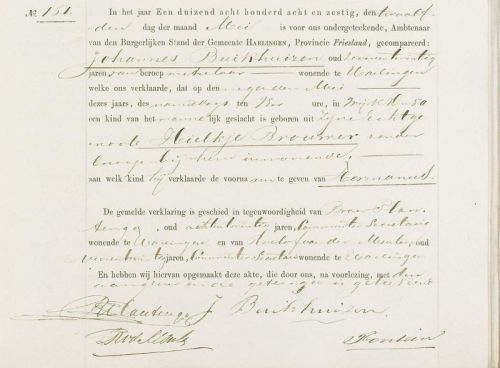 No. 151.
In het jaar Een duizend acht honderd acht en zestig, den twaalf-
den dag der maand Mei is voor ons ondergeteekende, Ambtenaar
van den Burgerlijken Stand der Gemeente HARLINGEN, Provincie Friesland, gecompareerd:
Johannes Buikhuizen oud
jaren van beroep metselaar wonende te Harlingen
welke ons verklaarde, dat op den negenden Mei
dezes jaars, des namiddags ten vier ure, in Wijk H n 50
een kind van het mannelijk geslacht is geboren uit zijne echtge
noote Hieltje Brouwer zonder
beroep bij hem inwonende,
aan welk kind hij verklaarde de voorna am te geven van Hermanus.
De gemelde verklaring is geschied in tegenwoordigheid van
oud jaren, Commies ter Secretarie
wonende te Harlingen en van Roelof van der Meulen, oud
jaren, Commies ter Secretarie wonende te Harlingen
En hebben wij hiervan opgemaakt deze akte, die door ons, na voorlezing, met den
aangever en de getuigen is geteekend
J Buikhuizen
Fontein